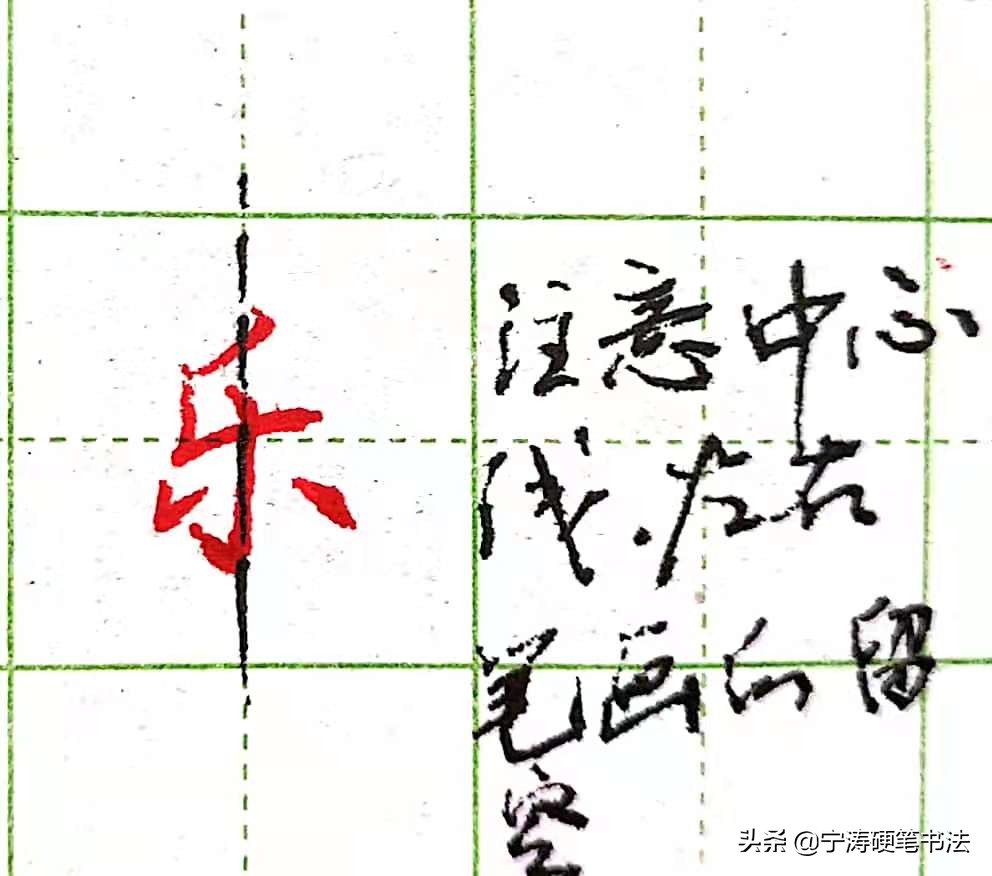 乐
注意中心
线.左右
笔画的留
空
头条 @宁涛硬笔书法